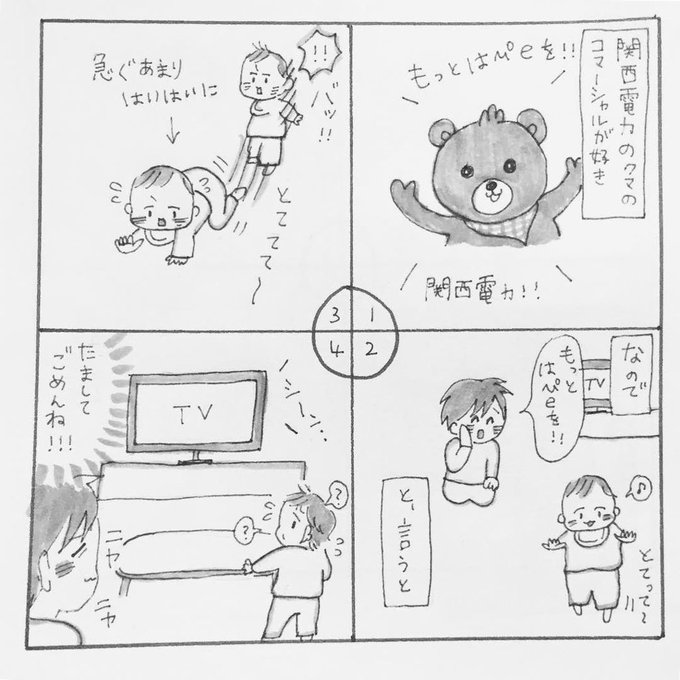 関西電力のクマの
コマーシャルが好き
もっとはぴeを!!
関西電力!!
1
2
3
4
なので
TV
もっと
はぴeを!!
♪
とてって〜
と、言うと
!!
バッ!!
急ぐあまり
はいはいに
とてててて〜
シーン…
TV
?
?
だまして
ごめんね!!!
ニヤ
ニヤ